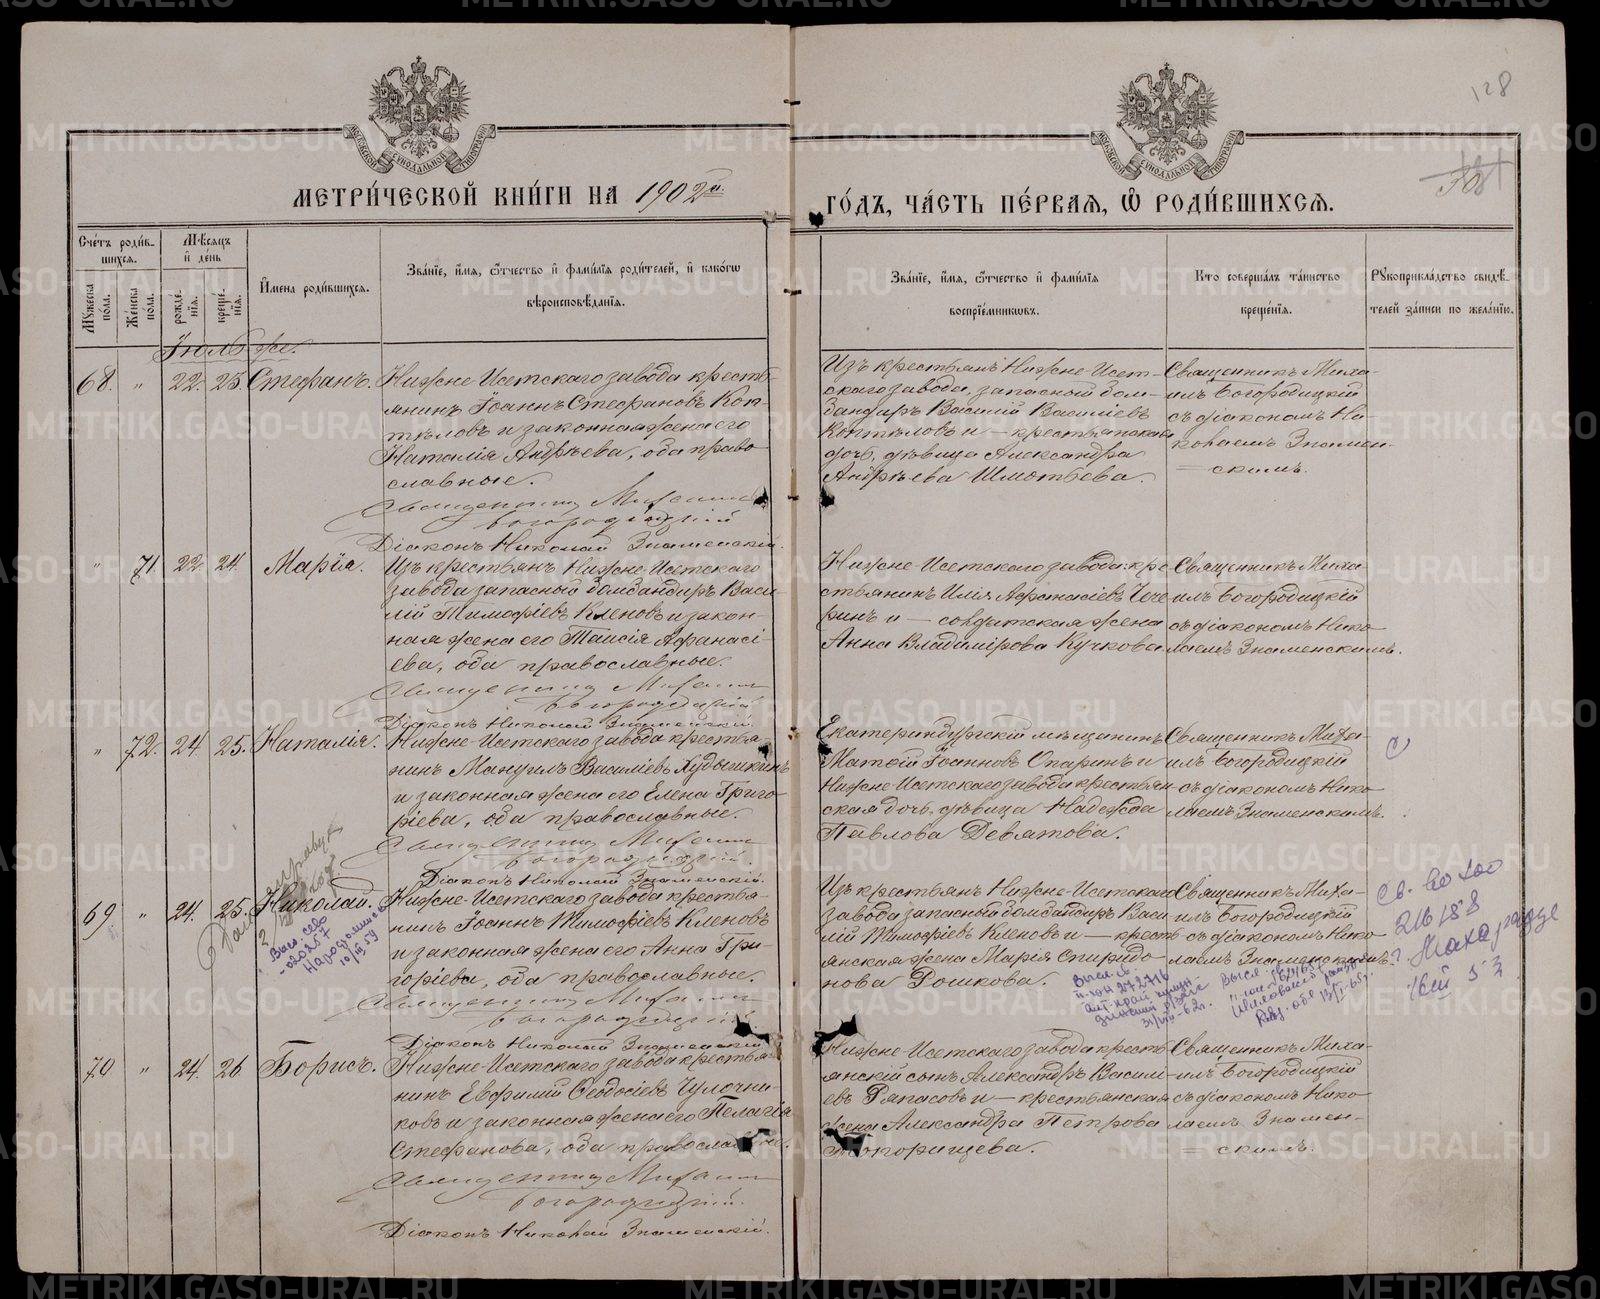 128
МЕТРИ́ЧЕСКОЙ КНИ́ГИ НА 1902й.
ГО́ДЪ, ЧА́СТЬ ПЕ́РВАЯ, Ѡ РОДИ́ВШИХСЯ.
Сче́тъ роди́в-
шихся.
Му́жеска
по́ла.
Же́нска
по́ла.
Мѣ́сяцъ
и де́нь
рожде-
нія.
креще́-
нія.
И́мена роди́вшихся.
Зва́ніе, и́мя, ѻ́тчество и фами́лія роди́телей, и како́гѡ
вѣроисповѣ́данія.
Зва́ніе, и́мя, ѻ́тчество и фами́лія
воспріе́мниковъ.
Кто соверша́лъ та́инство
креще́нія.
Рꙋкоприкла́дство свидѣ́-
телей за́писи по жела́нію.
Іюль же.
68. " 22. 25. Стефанъ.
Нижне-Исетскаго завода кресть-
янинъ Іоаннъ Стефановъ Коп-
тѣловъ и законная жена его
Наталія Андрѣева, оба право-
славные.
Священникъ Михаилъ
Богородицкій
Діаконъ Николай Знаменскій.
Изъ крестьянъ Нижне-Исет-
скаго завода, запасный бом-
бандиръ Василій Василіевъ
Коптѣловъ и — крестьянская
дочь, дѣвица Александра
Андрѣева Шмотьева.
Священникъ Миха-
илъ Богородицкій
съ діакономъ Ни-
колаемъ Знамен-
= скимъ.
" 71. 22. 24. Марія.
Изъ крестьянъ Нижне-Исетскаго
завода запасный бомбандиръ Васи-
лій Тимофіевъ Кленовъ и закон-
ная жена его Таисія Афанасі-
ева, оба православные.
Священникъ Михаилъ
Богородицкій
Діаконъ Николай Знаменскій.
Нижне-Исетскаго завода кре-
стьянинъ Илія Афанасіевъ Чече-
ринъ и — солдатская жена
Анна Владимірова Кучкова
Священникъ Миха-
илъ Богородицкій
съ діакономъ Нико-
лаемъ Знаменскимъ.
" 72. 24. 25. Наталія.
Нижне-Исетскаго завода крестья-
нинъ Мануилъ Василіевъ Худышкинъ
и законная жена его Елена Григо-
ріева, оба православные.
Священникъ Михаилъ
Богородицкій.
Діаконъ Николай Знаменскій.
Екатеринбургскій мѣщанинъ
Матѳій Іоанновъ Опаринъ и
Нижне-Исетскаго завода крестьян-
ская дочь, дѣвица Надежда
Павлова Девятова.
Священникъ Миха-
илъ Богородицкій
съ діакономъ Нико-
лаемъ Знаменскимъ.
69 " 24. 25. Николай.
Нижне-Исетскаго завода крестья-
нинъ Іоаннъ Тимофіевъ Кленовъ
и законная жена его Анна Гри-
горіева, оба православные.
Священникъ Михаилъ
Богородицкій.
Діаконъ Николай Знаменскій
Изъ крестьянъ Нижне-Исетскаго
завода запасный бомбандиръ Васи-
лій Тимофіевъ Кленовъ и — кресть-
янская жена Марія Спиридо-
нова Рошкова.
Священникъ Миха-
илъ Богородицкій
съ діакономъ Нико-
лаемъ Знаменскимъ.
70 " 24. 26 Борисъ.
Нижне-Исетскаго завода крестья-
нинъ Евфимій Ѳеодосіевъ Цулочни-
ковъ и законная жена его Пелагія
Стефанова, оба православные.
Священникъ Михаилъ
Богородицкій.
Діаконъ Николай Знаменскій.
Нижне-Исетскаго завода кресть-
янскій сынъ Александръ Василі-
евъ Ряпасовъ и — крестьянская
жена Александра Петрова
Священникъ Миха-
илъ Богородицкій
съ діакономъ Нико-
лаемъ Знамен-
= скимъ.
METRIKI.GASO-URAL.RU